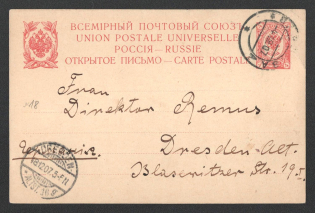 ВСЕМІРНЫЙ ПОЧТОВЫЙ СОЮЗЪ
UNION POSTALE UNIVERSELLE
РОССІЯ — RUSSIE
ОТКРЫТОЕ ПИСЬМО — CARTE POSTALE
Frau
Direktor Remus
Dresden-Alt.
Blasewitzer Str.